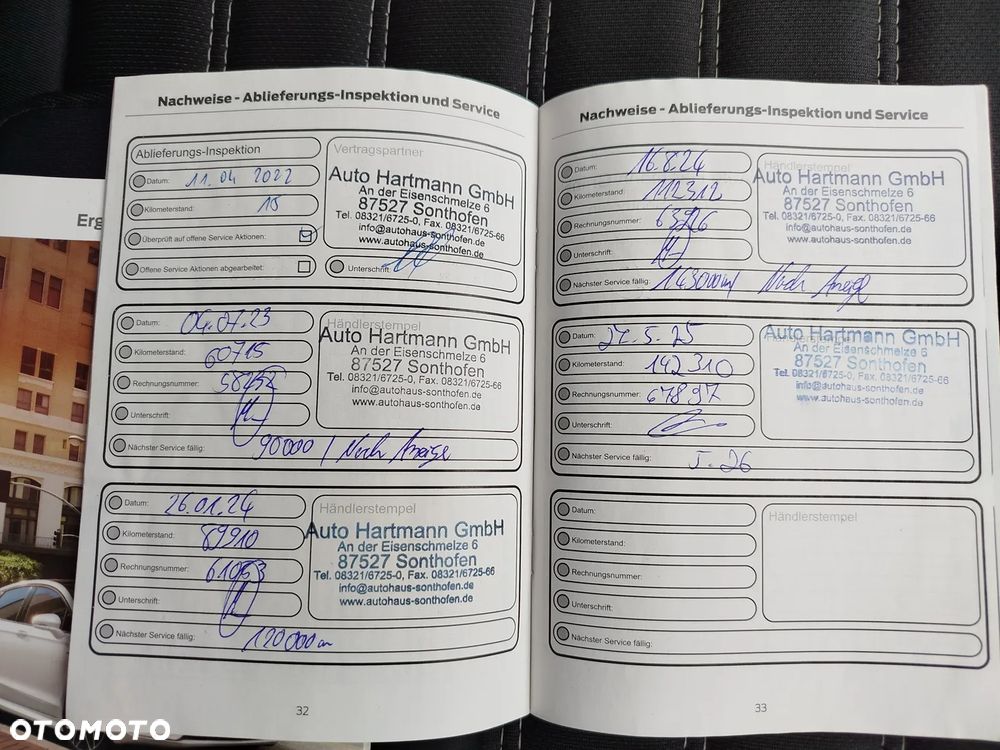 Erg
Nachweise - Ablieferungs-Inspektion und Service
Ablieferungs-Inspektion
Datum: 11.04 2022
Kilometerstand: 15
Überprüft auf offene Service Aktionen:
Offene Service Aktionen abgearbeitet:
Vertragspartner
Auto Hartmann GmbH
An der Eisenschmelze 6
87527 Sonthofen
Tel. 08321/6725-0, Fax. 08321/6725-66
info@autohaus-sonthofen.de
www.autohaus-sonthofen.de
Unterschrift:
Datum: 04.07.23
Kilometerstand: 60715
Rechnungsnummer:
Unterschrift:
Nächster Service fällig: 90000 / Nach Anzeige
Händlerstempel
Auto Hartmann GmbH
An der Eisenschmelze 6
87527 Sonthofen
Tel. 08321/6725-0, Fax. 08321/6725-66
info@autohaus-sonthofen.de
www.autohaus-sonthofen.de
Datum: 26.01.24
Kilometerstand: 89910
Rechnungsnummer:
Unterschrift:
Nächster Service fällig: 120000
Händlerstempel
Auto Hartmann GmbH
An der Eisenschmelze 6
87527 Sonthofen
Tel. 08321/6725-0, Fax. 08321/6725-66
info@autohaus-sonthofen.de
www.autohaus-sonthofen.de
32
Nachweise - Ablieferungs-Inspektion und Service
Datum: 16.8.24
Kilometerstand: 112312
Rechnungsnummer: 63926
Unterschrift:
Nächster Service fällig: 143000 / Nach Anzeige
Händlerstempel
Auto Hartmann GmbH
An der Eisenschmelze 6
87527 Sonthofen
Tel. 08321/6725-0, Fax. 08321/6725-66
info@autohaus-sonthofen.de
www.autohaus-sonthofen.de
Datum: 27.5.25
Kilometerstand: 142310
Rechnungsnummer: 67897
Unterschrift:
Nächster Service fällig: 5.26
Auto Hartmann GmbH
An der Eisenschmelze 6
87527 Sonthofen
Tel. 08321/6725-0, Fax. 08321/6725-66
info@autohaus-sonthofen.de
www.autohaus-sonthofen.de
Datum:
Kilometerstand:
Rechnungsnummer:
Unterschrift:
Nächster Service fällig:
Händlerstempel
33
OTOMOTO